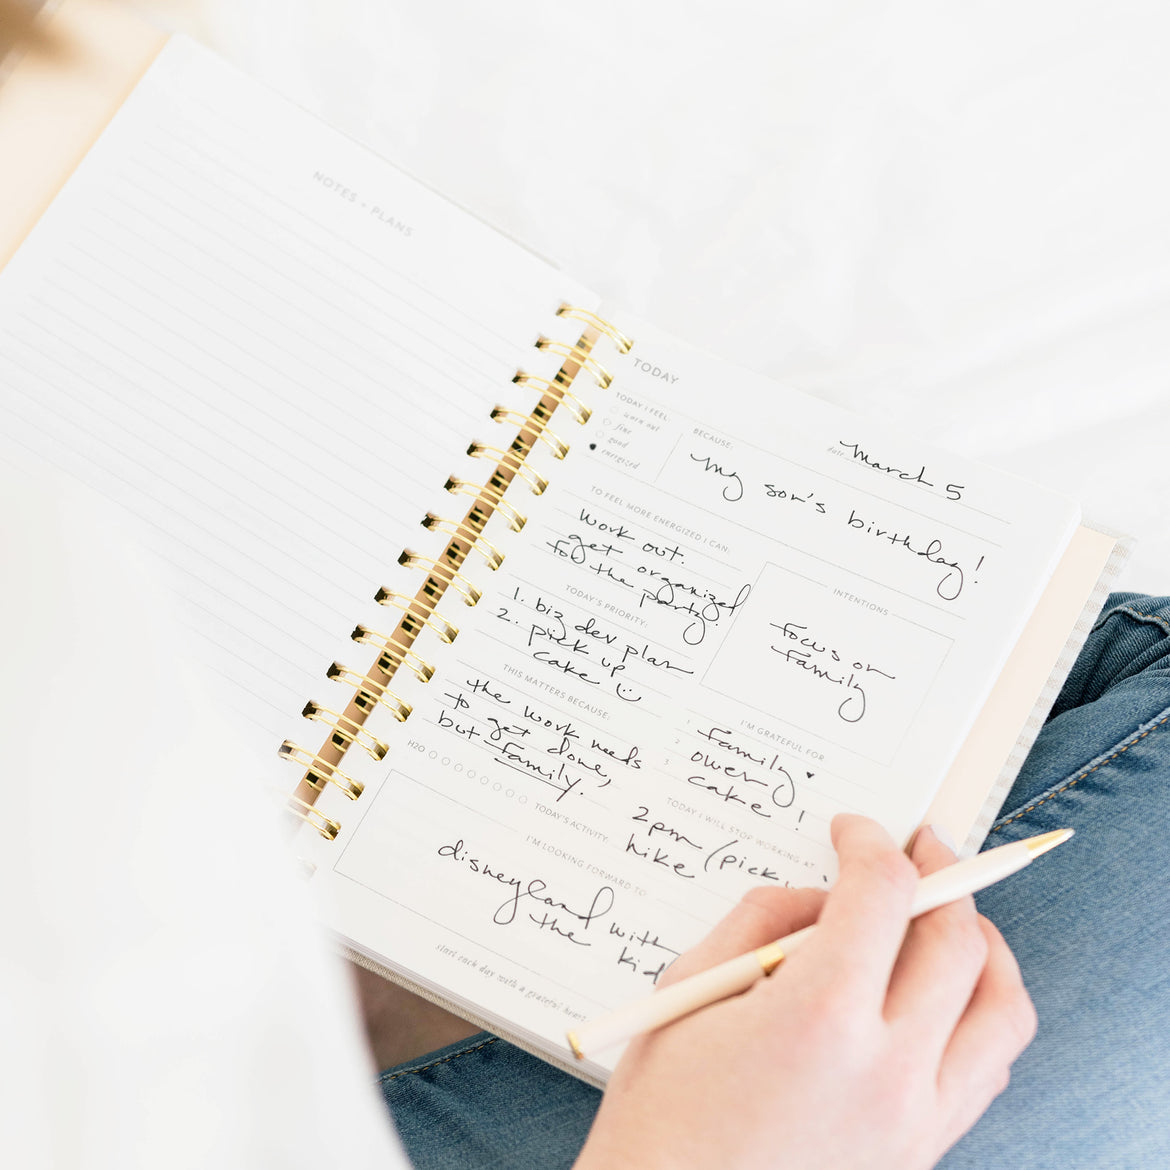 NOTES + PLANS
TODAY
TODAY I FEEL
worn out
fine
good
energized
BECAUSE:
date
March 5
my son's birthday!
TO FEEL MORE ENERGIZED I CAN:
work out.
get organized
for the party.
TODAY'S PRIORITY:
1. biz dev plan
2. pick up
cake
INTENTIONS
focus on
family
THIS MATTERS BECAUSE:
the work needs
to get done,
but family.
I'M GRATEFUL FOR
1 family ♥
2
3 cake!
H2O
TODAY'S ACTIVITY:
hike
TODAY I WILL STOP WORKING AT
2pm (pick
I'M LOOKING FORWARD TO
disneyland with
the kid
start each day with a grateful heart